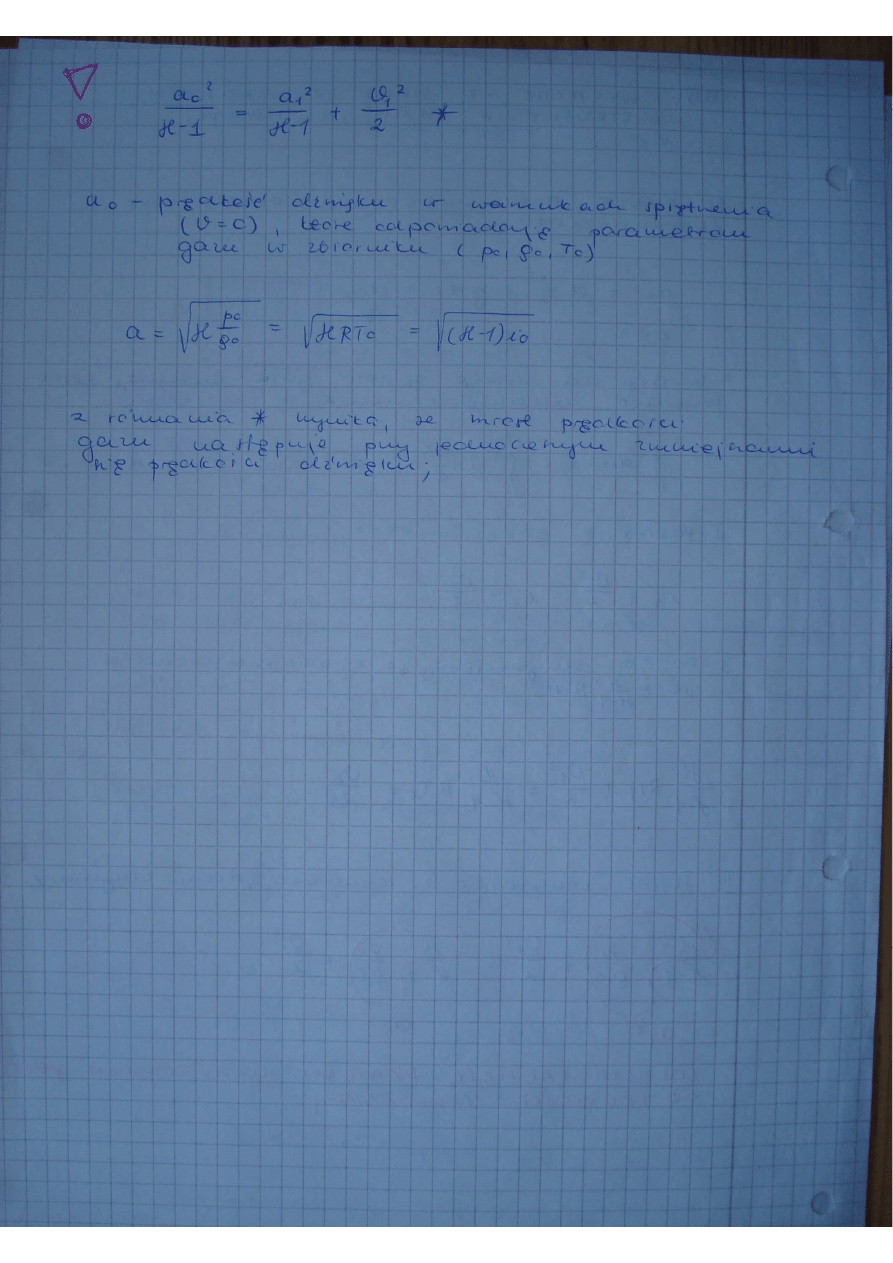 a₀²/(ϰ-1) = a₁²/(ϰ-1) + υ₁²/2 *
a₀ - prędkość dźwięku w warunkach spiętrzenia
(υ=0), które odpowiadają parametrom
gazu w zbiorniku (p₀, ρ₀, T₀)
a = √(ϰ p₀/ρ₀) = √(ϰRT₀) = √((ϰ-1)i₀)
z równania * wynika, że wzrost prędkości
gazu następuje przy jednoczesnym zmniejszaniu
się prędkości dźwięku;